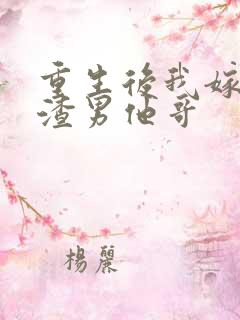 重生後我嫁
渣男他哥
楊麗